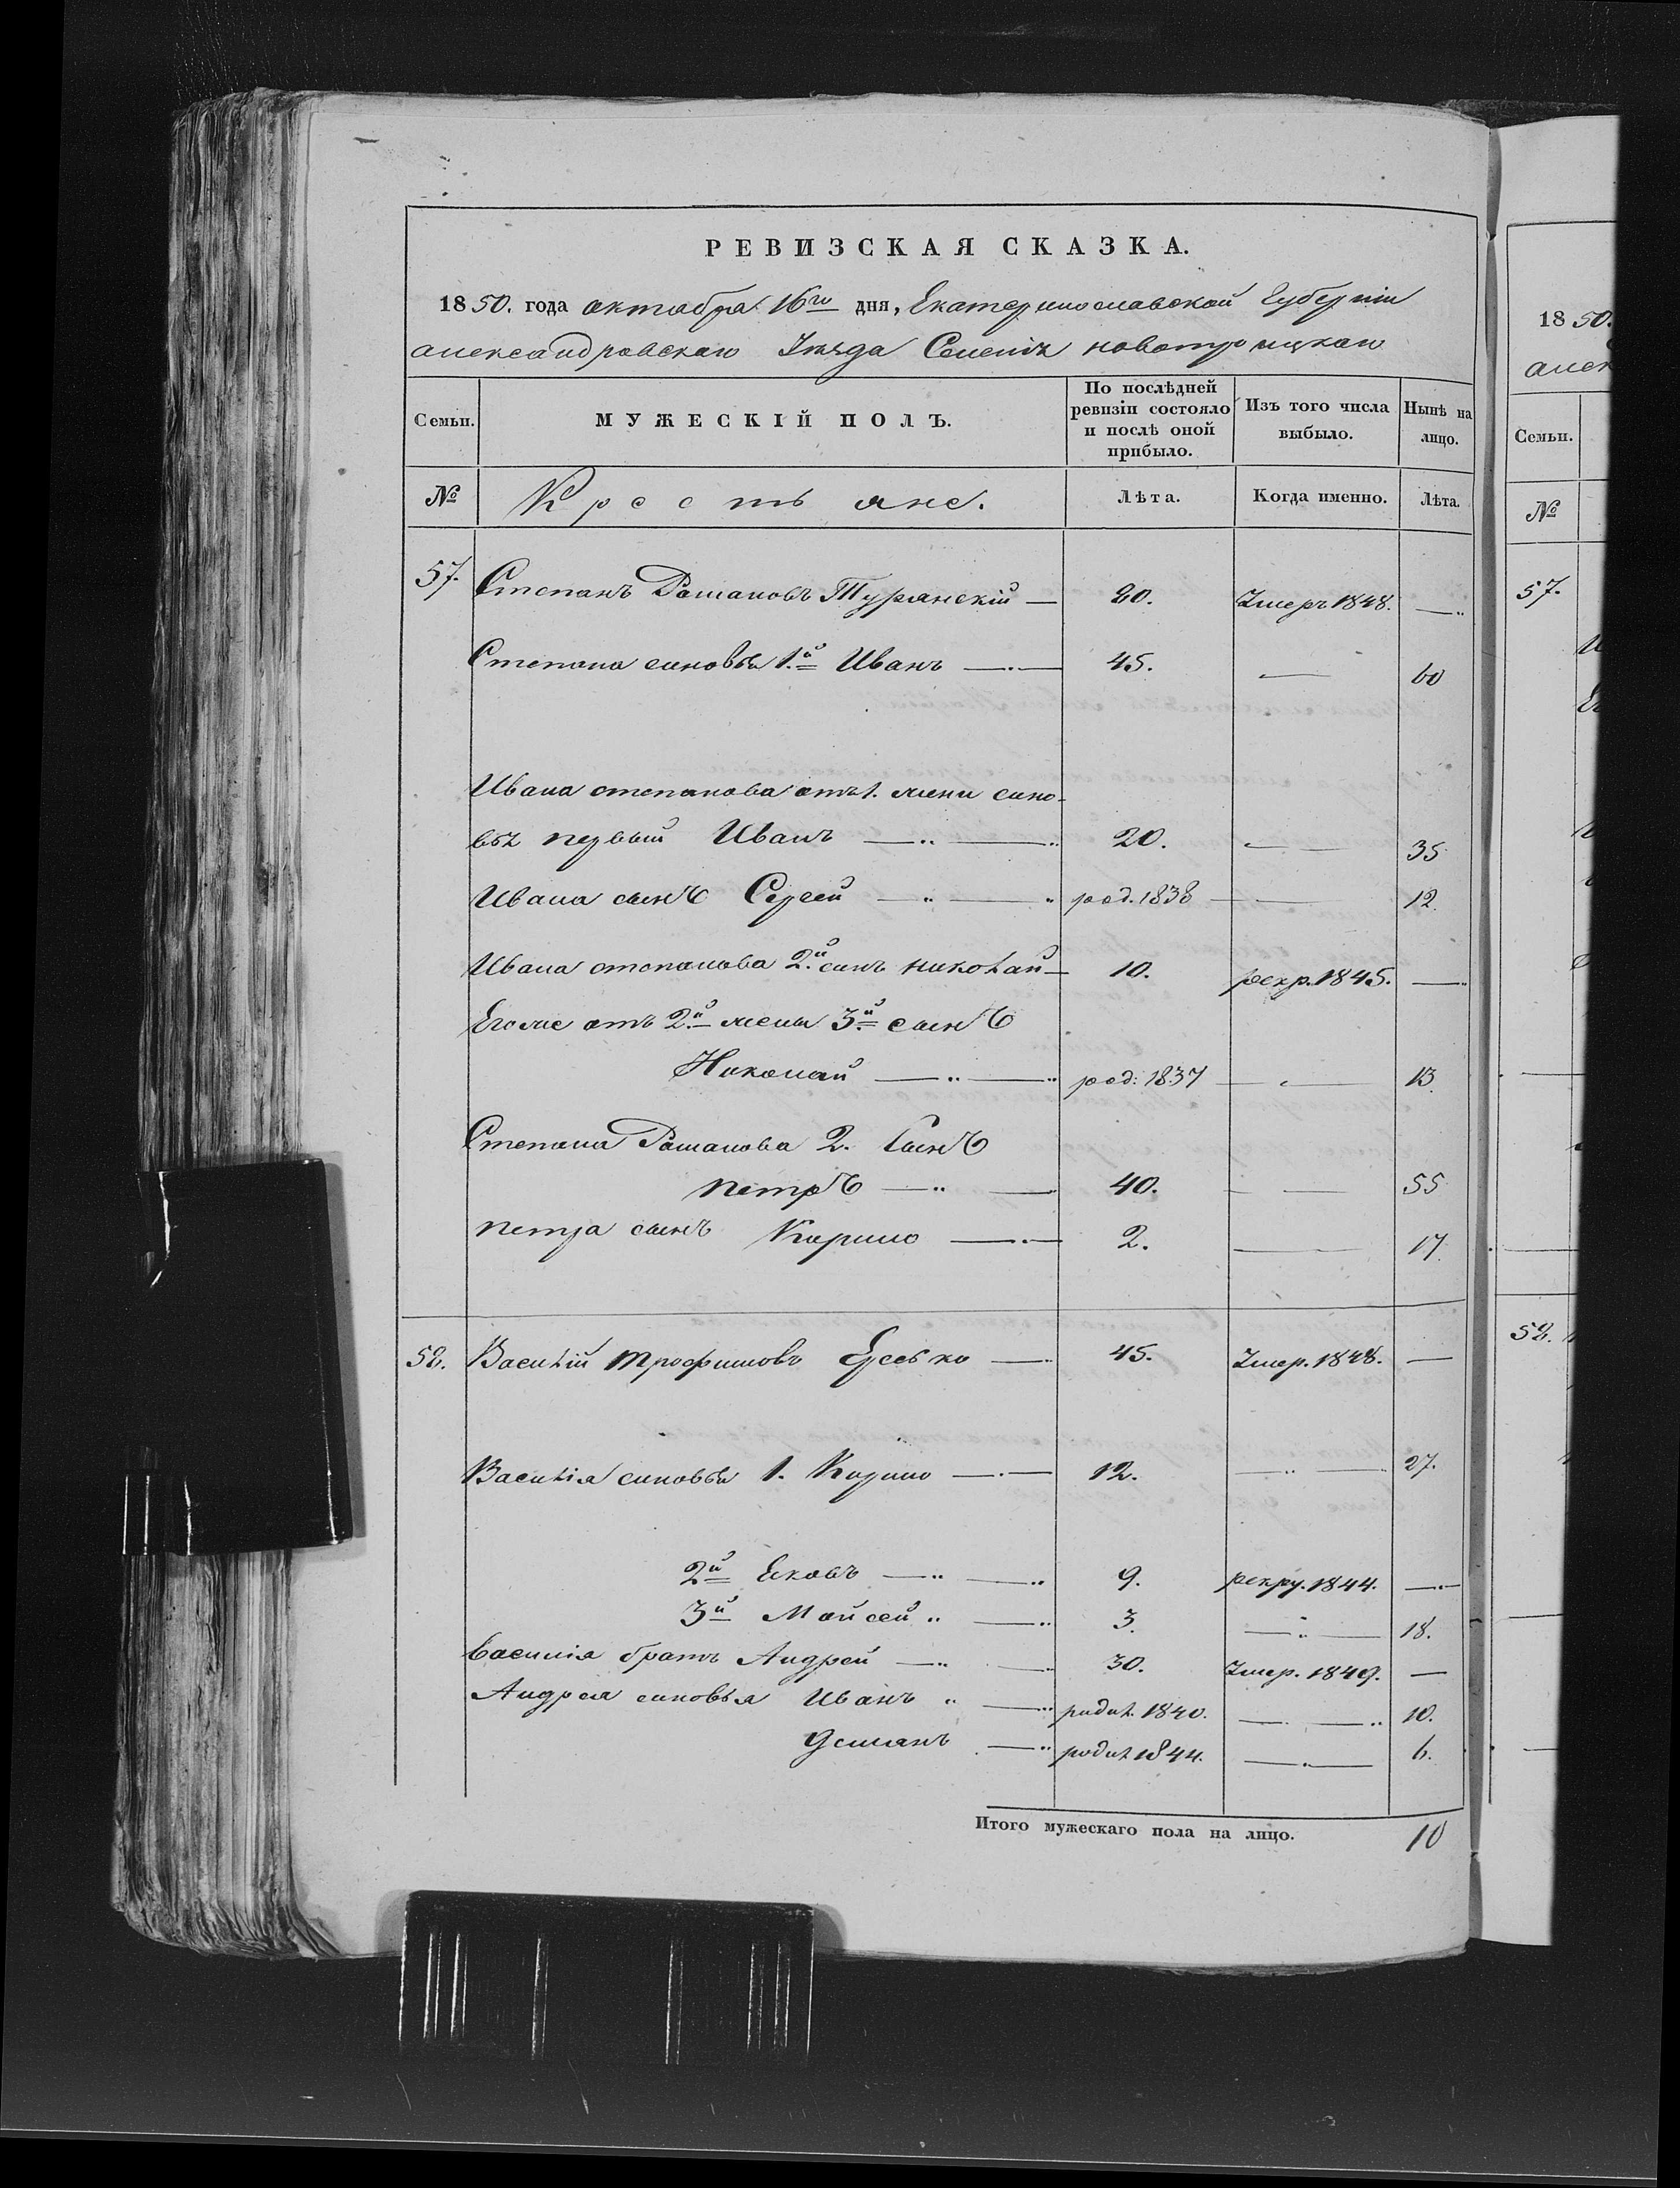 РЕВИЗСКАЯ СКАЗКА.
1850. года октабра 16го дня, Екатеринославской Губерніи
александровскаго Уезда Селенія новотроицкаго
Семьи. МУЖЕСКІЙ ПОЛЪ. По послѣдней ревизіи состояло и послѣ оной прибыло. Изъ того числа выбыло. Нынѣ на лицо.
№ Крестьяне. Лѣта. Когда именно. Лѣта.
57. Степанъ Романовъ Турянскій — 80. Умеръ 1848. —
Степана синовья 1.й Иванъ — 45. — 60
Ивана степанова отъ 1. жени сино-
въя первый Иванъ — 20. — 35
Ивана сынъ Сергей — род. 1838 — 12.
Ивана степанова 2.й синъ николай — 10. рекр. 1845. —
Егоже отъ 2.й жены 3.й сынъ
Николай — род: 1837 — 13.
Степана Романова 2. Сынъ
петръ — 40. — 55
петра сынъ Кирило — 2. — 17.
58. Василій трофимовъ Ересько — 45. Умер. 1848. —
Василія синовья 1. Кирило — 12. — 27.
2й Яковъ — 9. рекру. 1844. —
3й Мойсей — 3. — 18.
Василія братъ Андрей — 30. Умер. 1849. —
Андрея синовья Иванъ — родил. 1840. — 10.
Демянъ — родил 1844. — 6.
Итого мужескаго пола на лицо. 10
1850.
алек
Семьи.
№
57.
58.